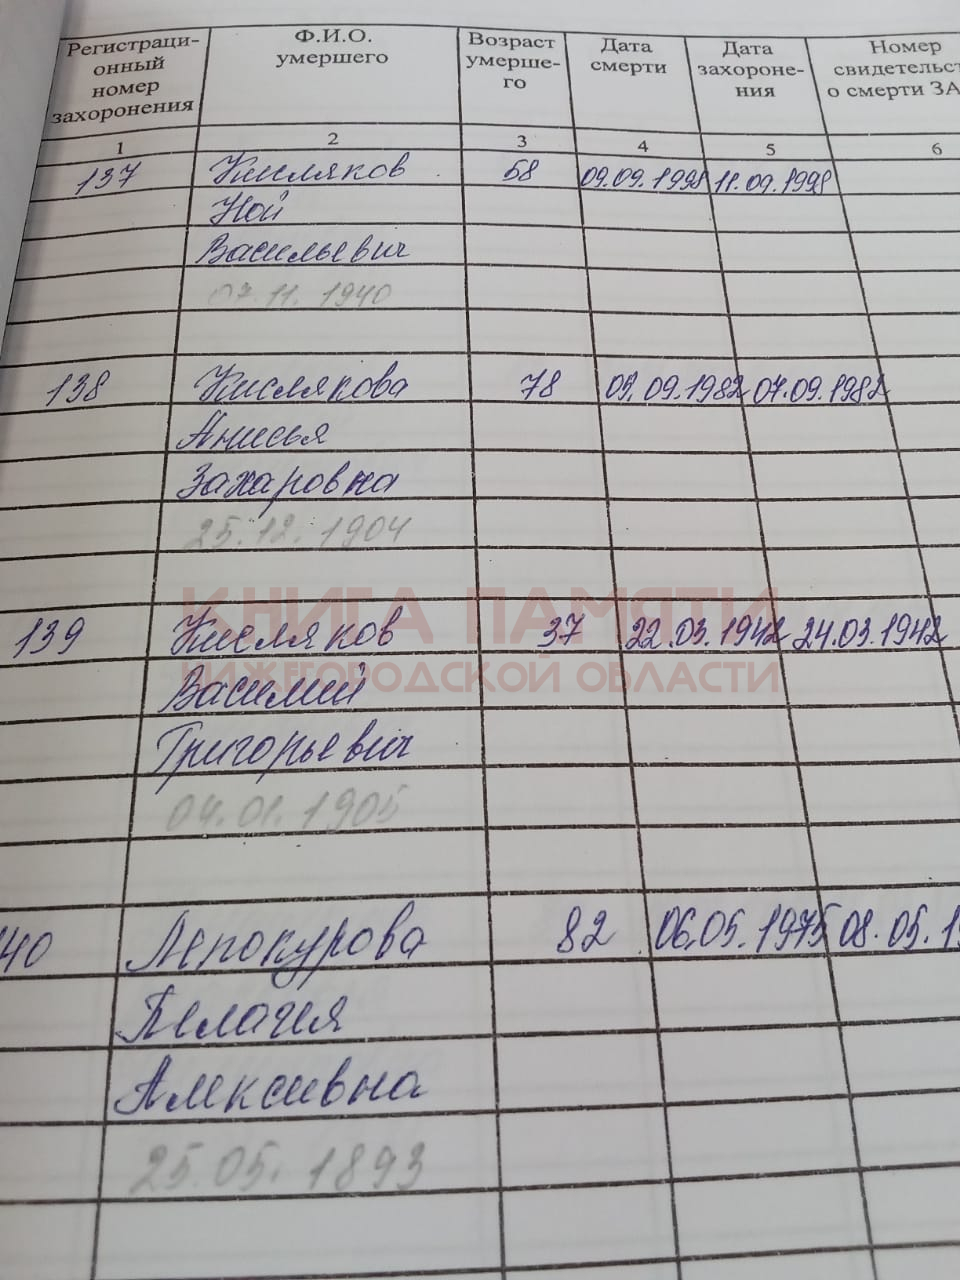 Регистраци-
онный
номер
захоронения
Ф.И.О.
умершего
Возраст
умерше-
го
Дата
смерти
Дата
захороне-
ния
Номер
свидетельст
о смерти ЗА
1 2 3 4 5 6
137 Кисляков 58 09.09.1998 11.09.1998
Ной
Васильевич
07.11.1940
138 Кислякова 78 05.09.1982 07.09.1982
Анисья
Захаровна
25.12.1904
КНИГА ПАМЯТИ
139 Кисляков 37 22.03.1942 24.03.1942
НИЖЕГОРОДСКОЙ ОБЛАСТИ
Василий
Григорьевич
04.01.1905
40 Лепокурова 82 06.05.1975 08.05.19
Пелагея
Алексивна
25.05.1893